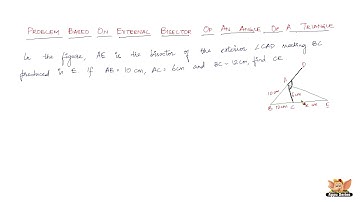 PROBLEM BASED ON EXTERNAL BISECTOR OF AN ANGLE OF A TRIANGLE
In the figure, AE is the bisector of the exterior ∠CAD meeting BC
produced in E. If AB = 10 cm, AC = 6cm and BC = 12cm, find CE
D
A
10cm
6cm
B 12cm C x cm E